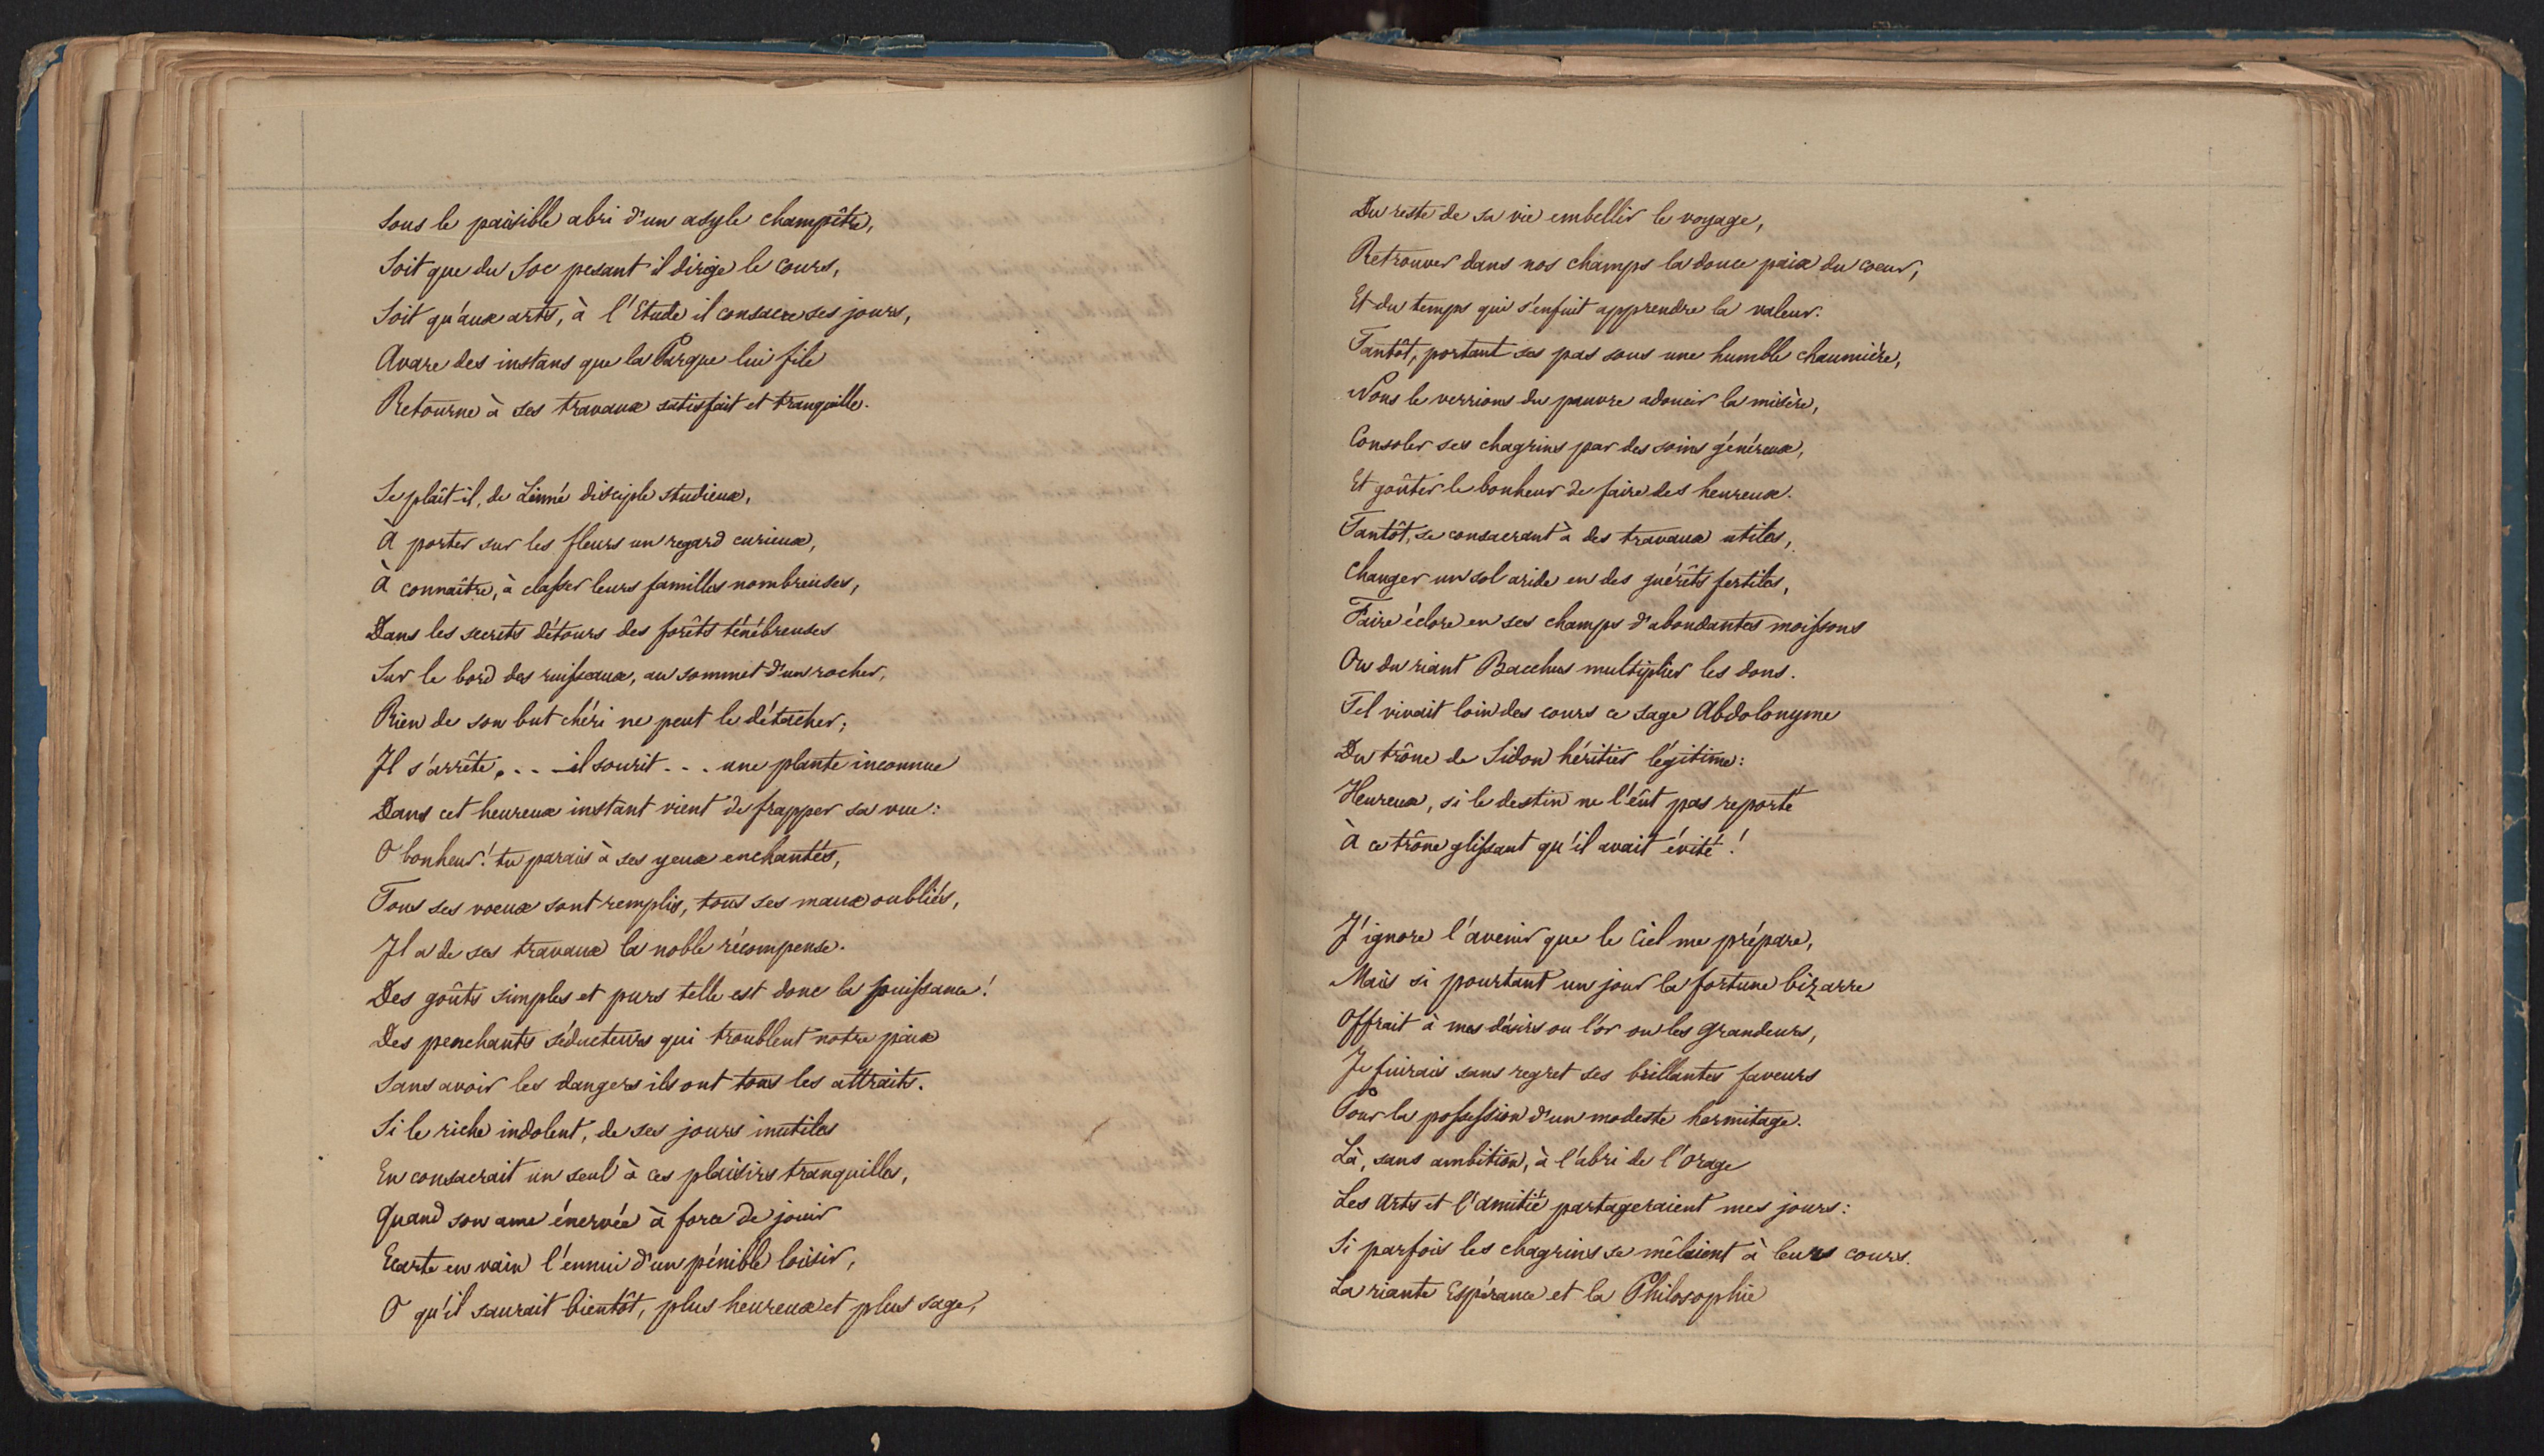 Sous le paisible abri d'un asyle champêtre,
Soit que du Soc pesant il dirige le cours,
Soit qu'aux arts, à l'Etude il consacre ses jours,
Avare des instans que la Parque lui file
Retourne à ses travaux satisfait et tranquille.
Se plaît-il, de Linné disciple studieux,
À porter sur les fleurs un regard curieux,
À connaître, à classer leurs familles nombreuses,
Dans les secrets détours des forêts ténébreuses
Sur le bord des ruisseaux, au sommet d'un rocher,
Rien de son but chéri ne peut le détacher;
Il s'arrête. . . - il sourit . . . une plante inconnue
Dans cet heureux instant vient de frapper sa vue:
O bonheur! tu parais à ses yeux enchantés,
Tous ses voeux sont remplis, tous ses maux oubliés,
Il a de ses travaux la noble récompense.
Des goûts simples et purs telle est donc la puissance!
Des penchants séducteurs qui troublent notre paix
Sans avoir les dangers ils ont tous les attraits.
Si le riche indolent, de ses jours inutiles
En consacrait un seul à ces plaisirs tranquilles,
Quand son ame énervée à force de jouir
Ecarte en vain l'ennui d'un pénible loisir,
O qu'il saurait bientôt, plus heureux et plus sage,
Du reste de sa vie embellir le voyage,
Retrouver dans nos champs la douce paix du coeur,
Et du temps qui s'enfuit apprendre la valeur.
Tantôt, portant ses pas sous une humble chaumière,
Nous le verrions du pauvre adoucir la misère,
Consoler ses chagrins par des soins généreux,
Et goûter le bonheur de faire des heureux.
Tantôt, se consacrant à des travaux utiles,
Changer un sol aride en des guérêts fertiles,
Faire éclore en ses champs d'abondantes moissons
Ou du riant Bacchus multiplier les dons.
Tel vivait loin des cours ce sage Abdolonyme
Du trône de Sidon héritier légitime:
Heureux, si le destin ne l'eût pas reporté
À ce trône glissant qu'il avait évité!
J'ignore l'avenir que le Ciel me prépare,
Mais si pourtant un jour la fortune bizarre
Offrait à mes désirs ou l'or ou les grandeurs,
Je fuirais sans regret ses brillantes faveurs
Pour la possession d'un modeste hermitage.
Là, sans ambition, à l'abri de l'orage
Les Arts et l'amitié partageraient mes jours:
Si parfois les chagrins se mêlaient à leurs cours.
La riante Espérance et la Philosophie